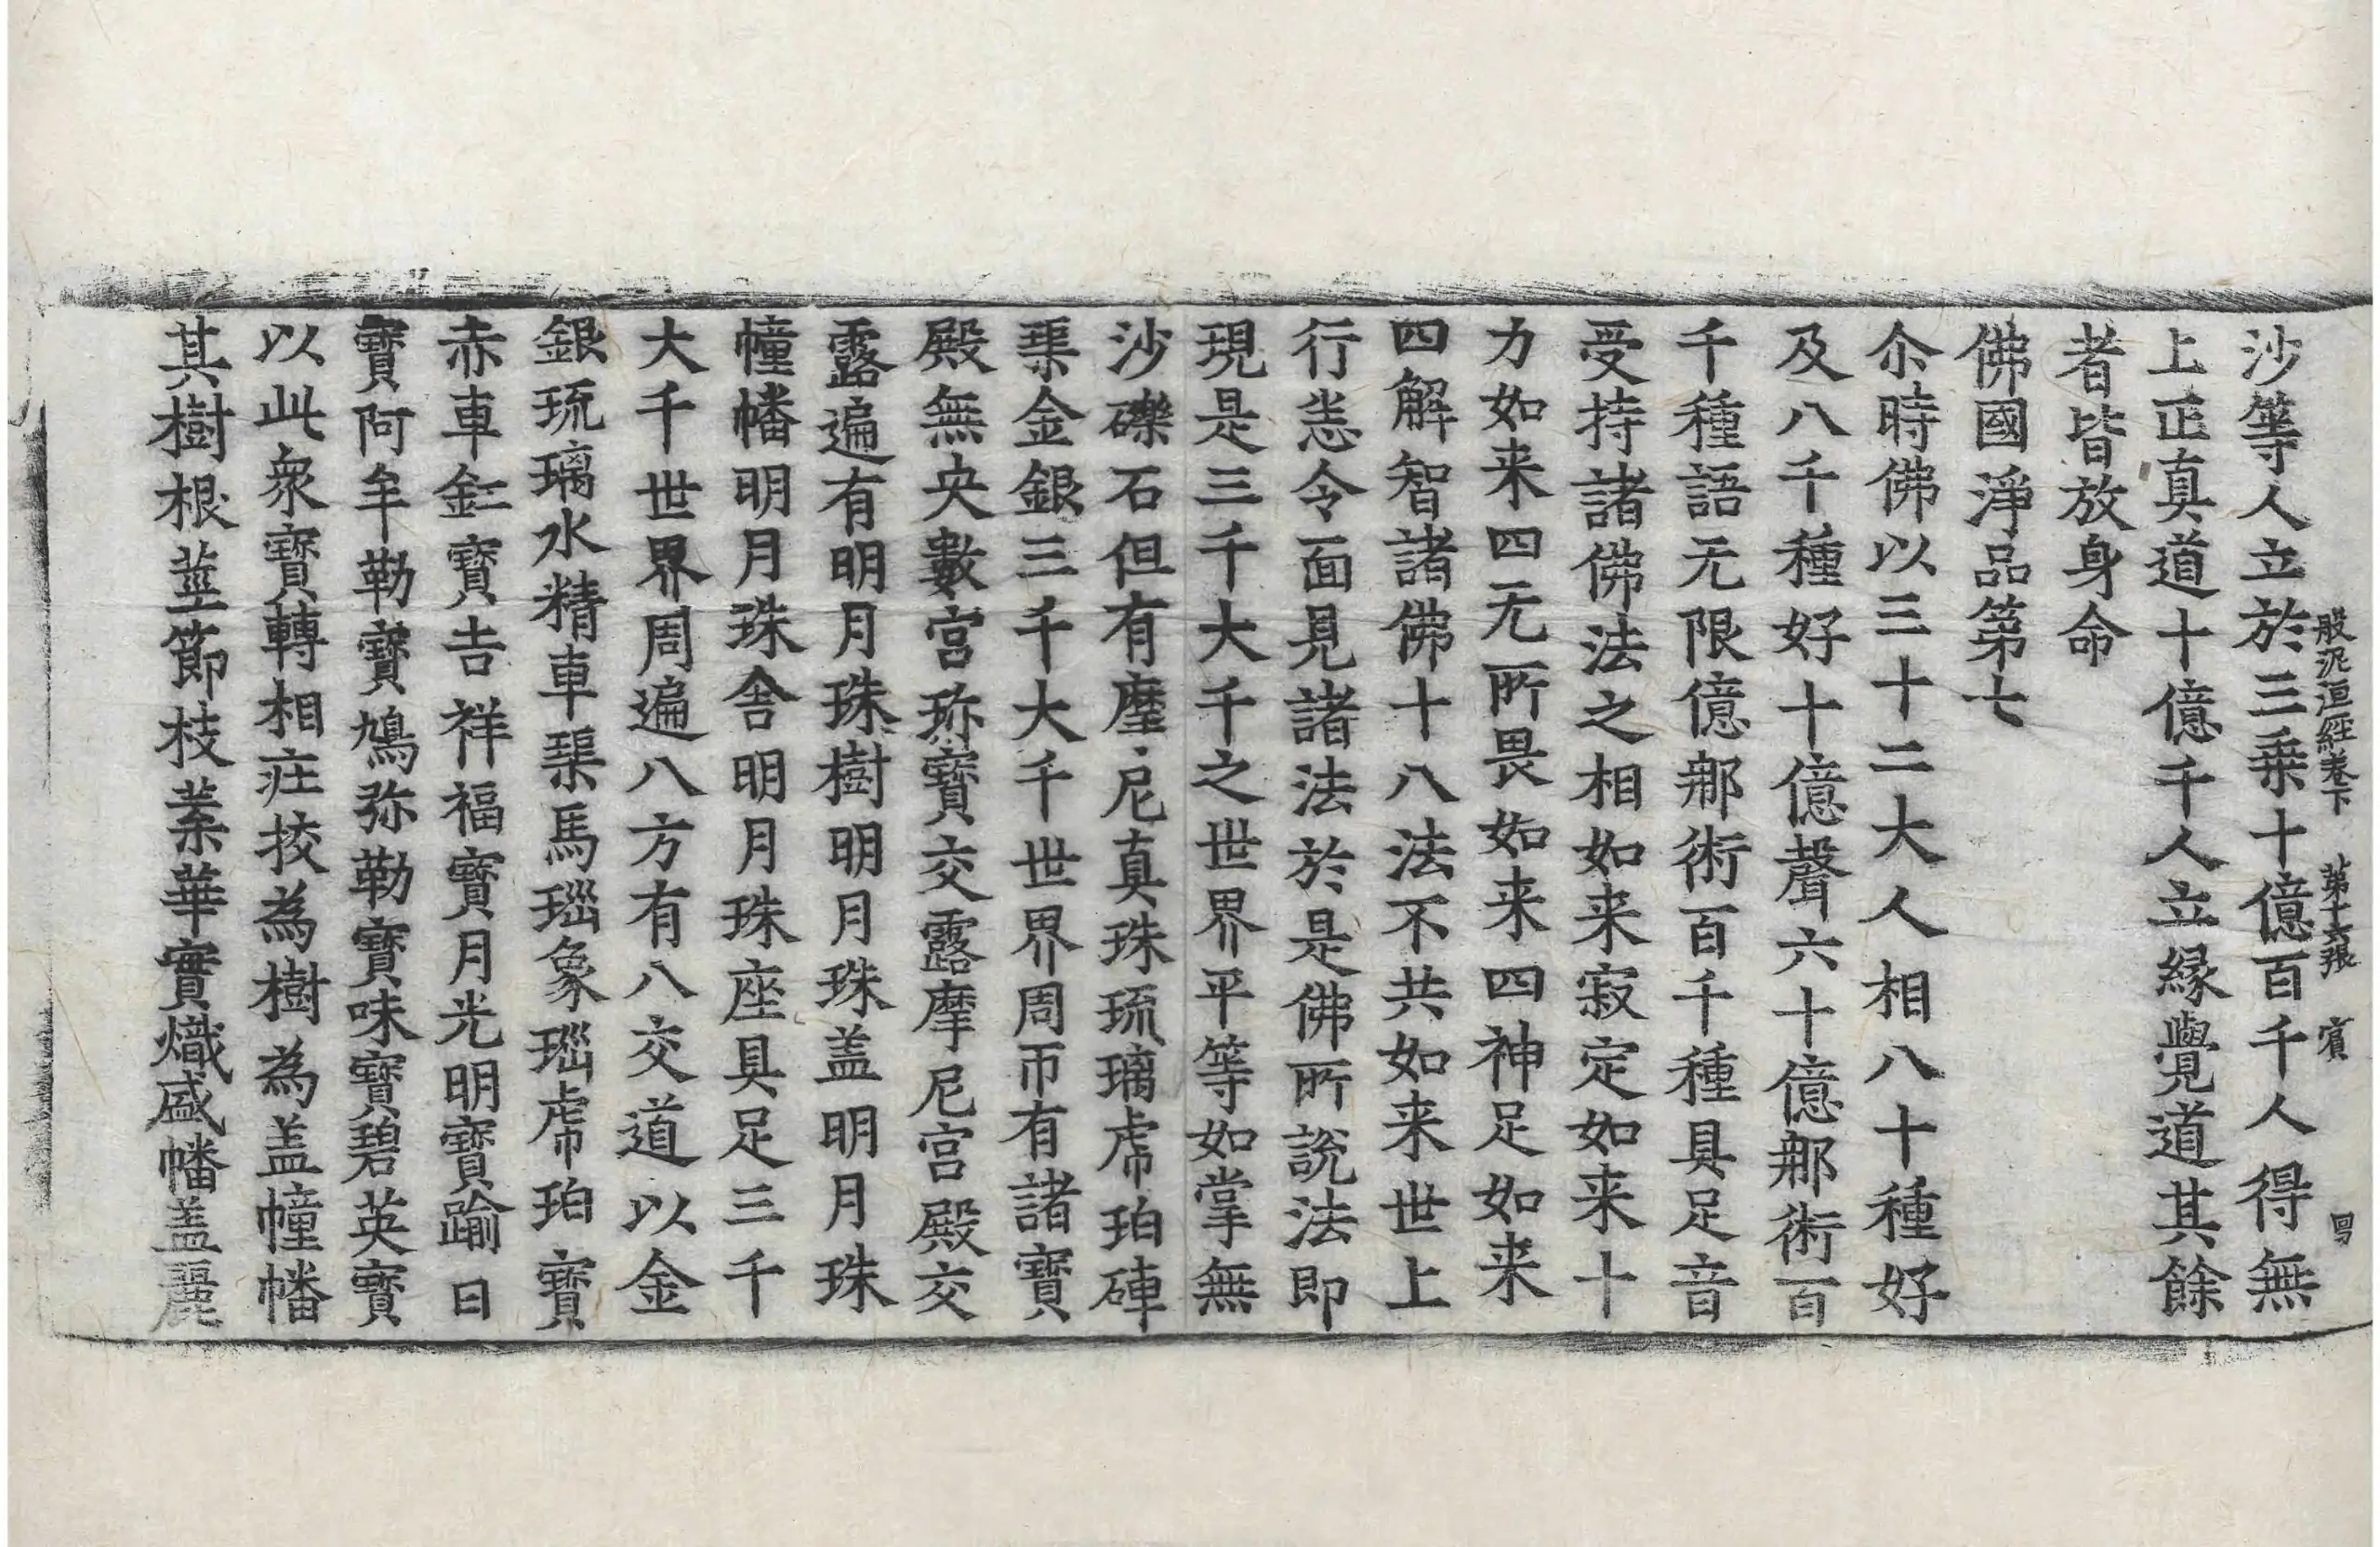 般泥洹經卷下 第十六張 賓
沙等人立於三乗十億百千人得無
上正真道十億千人立縁覺道其餘
者皆放身命
佛國淨品第七
尒時佛以三十二大人相八十種好
及八千種好十億聲六十億那術百
千種語无限億那術百千種具足音
受持諸佛法之相如来寂定如来十
力如来四无所畏如来四神足如来
四解智諸佛十八法不共如来世上
行恙令面見諸法於是佛所說法即
現是三千大千之世界平等如掌無
沙礫石但有摩尼真珠琉璃虎珀硨
磲金銀三千大千世界周帀有諸寶
殿無央數宮珎寶交露摩尼宮殿交
露遍有明月珠樹明月珠盖明月珠
幢幡明月珠舍明月珠座具足三千
大千世界周遍八方有八交道以金
銀琉璃水精車璖馬瑙象瑙虎珀寶
赤車釭寶吉祥福寶月光明寶踰日
寶阿牟勒寶鳩弥勒寶味寶碧英寶
以此衆寶轉相庄挍為樹為盖幢幡
其樹根莖節枝葉華實熾盛幡盖麗